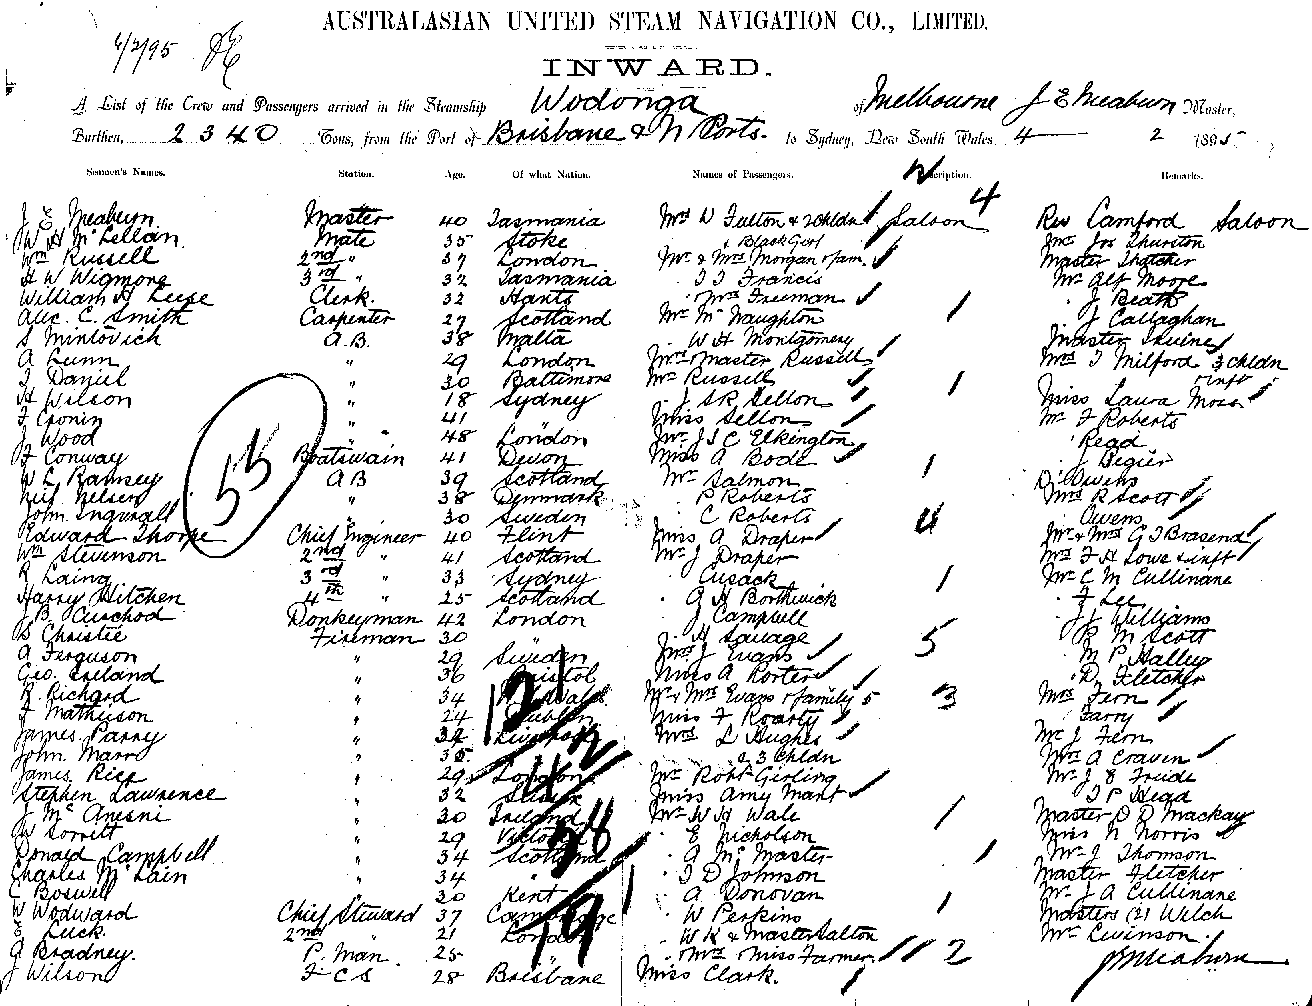 AUSTRALASIAN UNITED STEAM NAVIGATION CO., LIMITED.
INWARD.
A List of the Crew and Passengers arrived in the Steamship Wodonga of Melbourne J E Meaburn Master,
Burthen, 2340 Tons, from the Port of Brisbane & N Ports. to Sydney, New South Wales 4 2 1895
Seamen's Names. Station. Age. Of what Nation. Names of Passengers. Description. Remarks.
J E Meaburn Master 40 Tasmania Mrs W Fulton & 2 Chldn Saloon 4 Rev Camford Saloon
W H McLellan Mate 35 Stoke & Black Girl Mr Jos Thurston
Wm Russell 2nd " 37 London Mr & Mrs Morgan & fam. Master Thatcher
H W Wigmore 3rd " 32 Tasmania T J Francis Mr Alf Moore
William H Leese Clerk. 32 Hants Mrs Freeman 1 J Beath
Alec. C. Smith Carpenter 27 Scotland Mr McNaughton J Callaghan
S Mintovich A.B. 38 Malta W H Montgomery Master Irvine
A Lunn " 29 London Mrs & Master Russell Mrs T Milford 3 Chldn
J Daniel " 30 Baltimore Mr Russell 1 & inft
H Wilson " 18 Sydney J S R Sellon Miss Laura Moss
F Cronin " 41 " Miss Sellon Mr F Roberts
J Wood " 48 London Mr J S C Elkington Read
F Conway Boatswain 41 Devon Miss A Bode J Begier
W L Ramsey A B 39 Scotland Mr Salmon 1 Dr Owens
Neil Nelsen " 38 Denmark P Roberts Mrs R Scott
John Ingvall " 30 Sweden C Roberts 4 Owens
Edward Thorpe Chief Engineer 40 Flint Miss A Draper Mr & Mrs G T Brasend
Wm Stevenson 2nd " 41 Scotland Mr J Draper Mrs F H Lowe & inft
R Laing 3rd " 33 Sydney Cusack 1 Mr C M Cullinane
Harry Hitchen 4th " 25 Scotland G H Borthwick F Lee
J B Cuschod Donkeyman 42 London J Campbell J J Williams
D Christie Fireman 30 " H Savage 5 R M Scott
A Ferguson " 29 Sweden Mrs J Evans M P Halley
Geo. Ireland " 36 Bristol Miss A Porter D Fletcher
R. Richard " 34 Mr & Mrs Evans & family 5 3 Mrs Fern
J Mathieson " 24 Dublin Miss F Roarty Farry
James Parry " 34 Liverpool Mrs L Hughes Mr J Fern
John Marr " 35 & 3 Chldn Mrs A Craven
James Rice " 29 London Mr Robt Girling Mr J E Trude
Stephen Lawrence " 32 Miss Amy Mant T P Head
J McAnesni " 30 Ireland Mr W H Wale 1 Master D D Mackay
W Sorritt " 29 Victoria E Nicholson Miss N Norris
Donald Campbell " 34 Scotland A McMaster 1 Mr J Thomson
Charles McLain " 34 " J D Johnson Master Fletcher
C Boswell " 30 Kent A Donovan 1 Mr J A Cullinane
W Wodward Chief Steward 37 Cambridge W Perkins Masters (2) Welch
E Luck 2nd " 21 London W K & Master Salton Mr Levinson
G Bradney. P. Man 25 " Mrs & Miss Farmer 2 J E Meaburn
J Wilson F C S 28 Brisbane Miss Clark.
4/2/95
55
121
42
38